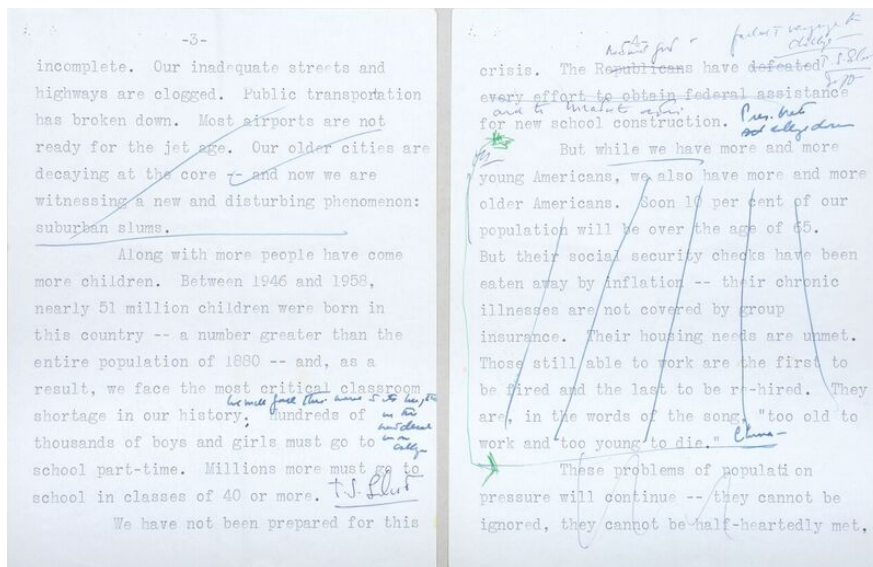 -3-
incomplete. Our inadequate streets and
highways are clogged. Public transportation
has broken down. Most airports are not
ready for the jet age. Our older cities are
decaying at the core -- and now we are
witnessing a new and disturbing phenomenon:
suburban slums.
Along with more people have come
more children. Between 1946 and 1958,
nearly 51 million children were born in
this country -- a number greater than the
entire population of 1880 -- and, as a
result, we face the most critical classroom
shortage in our history. Hundreds of
thousands of boys and girls must go to
school part-time. Millions more must go to
school in classes of 40 or more.
We have not been prepared for this
-4-
crisis. The Republicans have defeated
every effort to obtain federal assistance
for new school construction.
But while we have more and more
young Americans, we also have more and more
older Americans. Soon 10 per cent of our
population will be over the age of 65.
But their social security checks have been
eaten away by inflation -- their chronic
illnesses are not covered by group
insurance. Their housing needs are unmet.
Those still able to work are the first to
be fired and the last to be re-hired. They
are, in the words of the song, "too old to
work and too young to die."
These problems of population
pressure will continue -- they cannot be
ignored, they cannot be half-heartedly met,